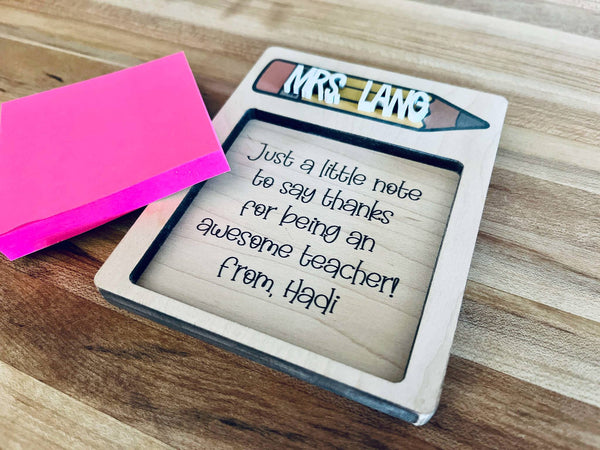 MRS. LANG
Just a little note
to say thanks
for being an
awesome teacher!
from, Hadi